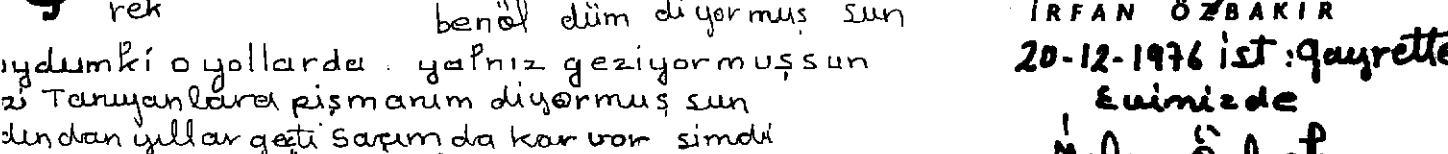 rek benöl düm diyormuş sun
ıydumki o yollarda . yalnız geziyormuşsun
zi Tanıyanlara pişmanım diyormuş sun
dından yıllar geçti saçım da kar var simdi
İRFAN ÖZBAKIR
20-12-1976 ist : gayrette
Evimizde